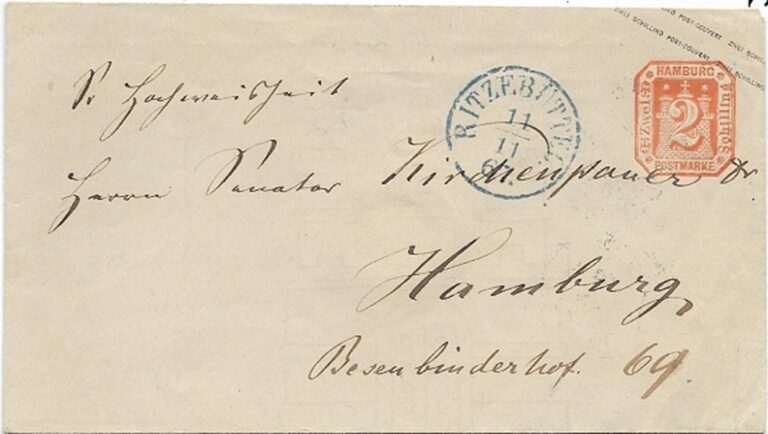 ZWEI SCHILLING POST-COUVERT ZWEI SCHILLING
ZWEI SCHILLING POST-COUVERT ZWEI SCHILLING
HAMBURG
Zwei
2
Schilling
POSTMARKE
RITZEBÜTTEL
11
11
Sr Hochweisheit
Herrn Senator Kirchenpauer Dr
Hamburg,
Besenbinderhof. 69.